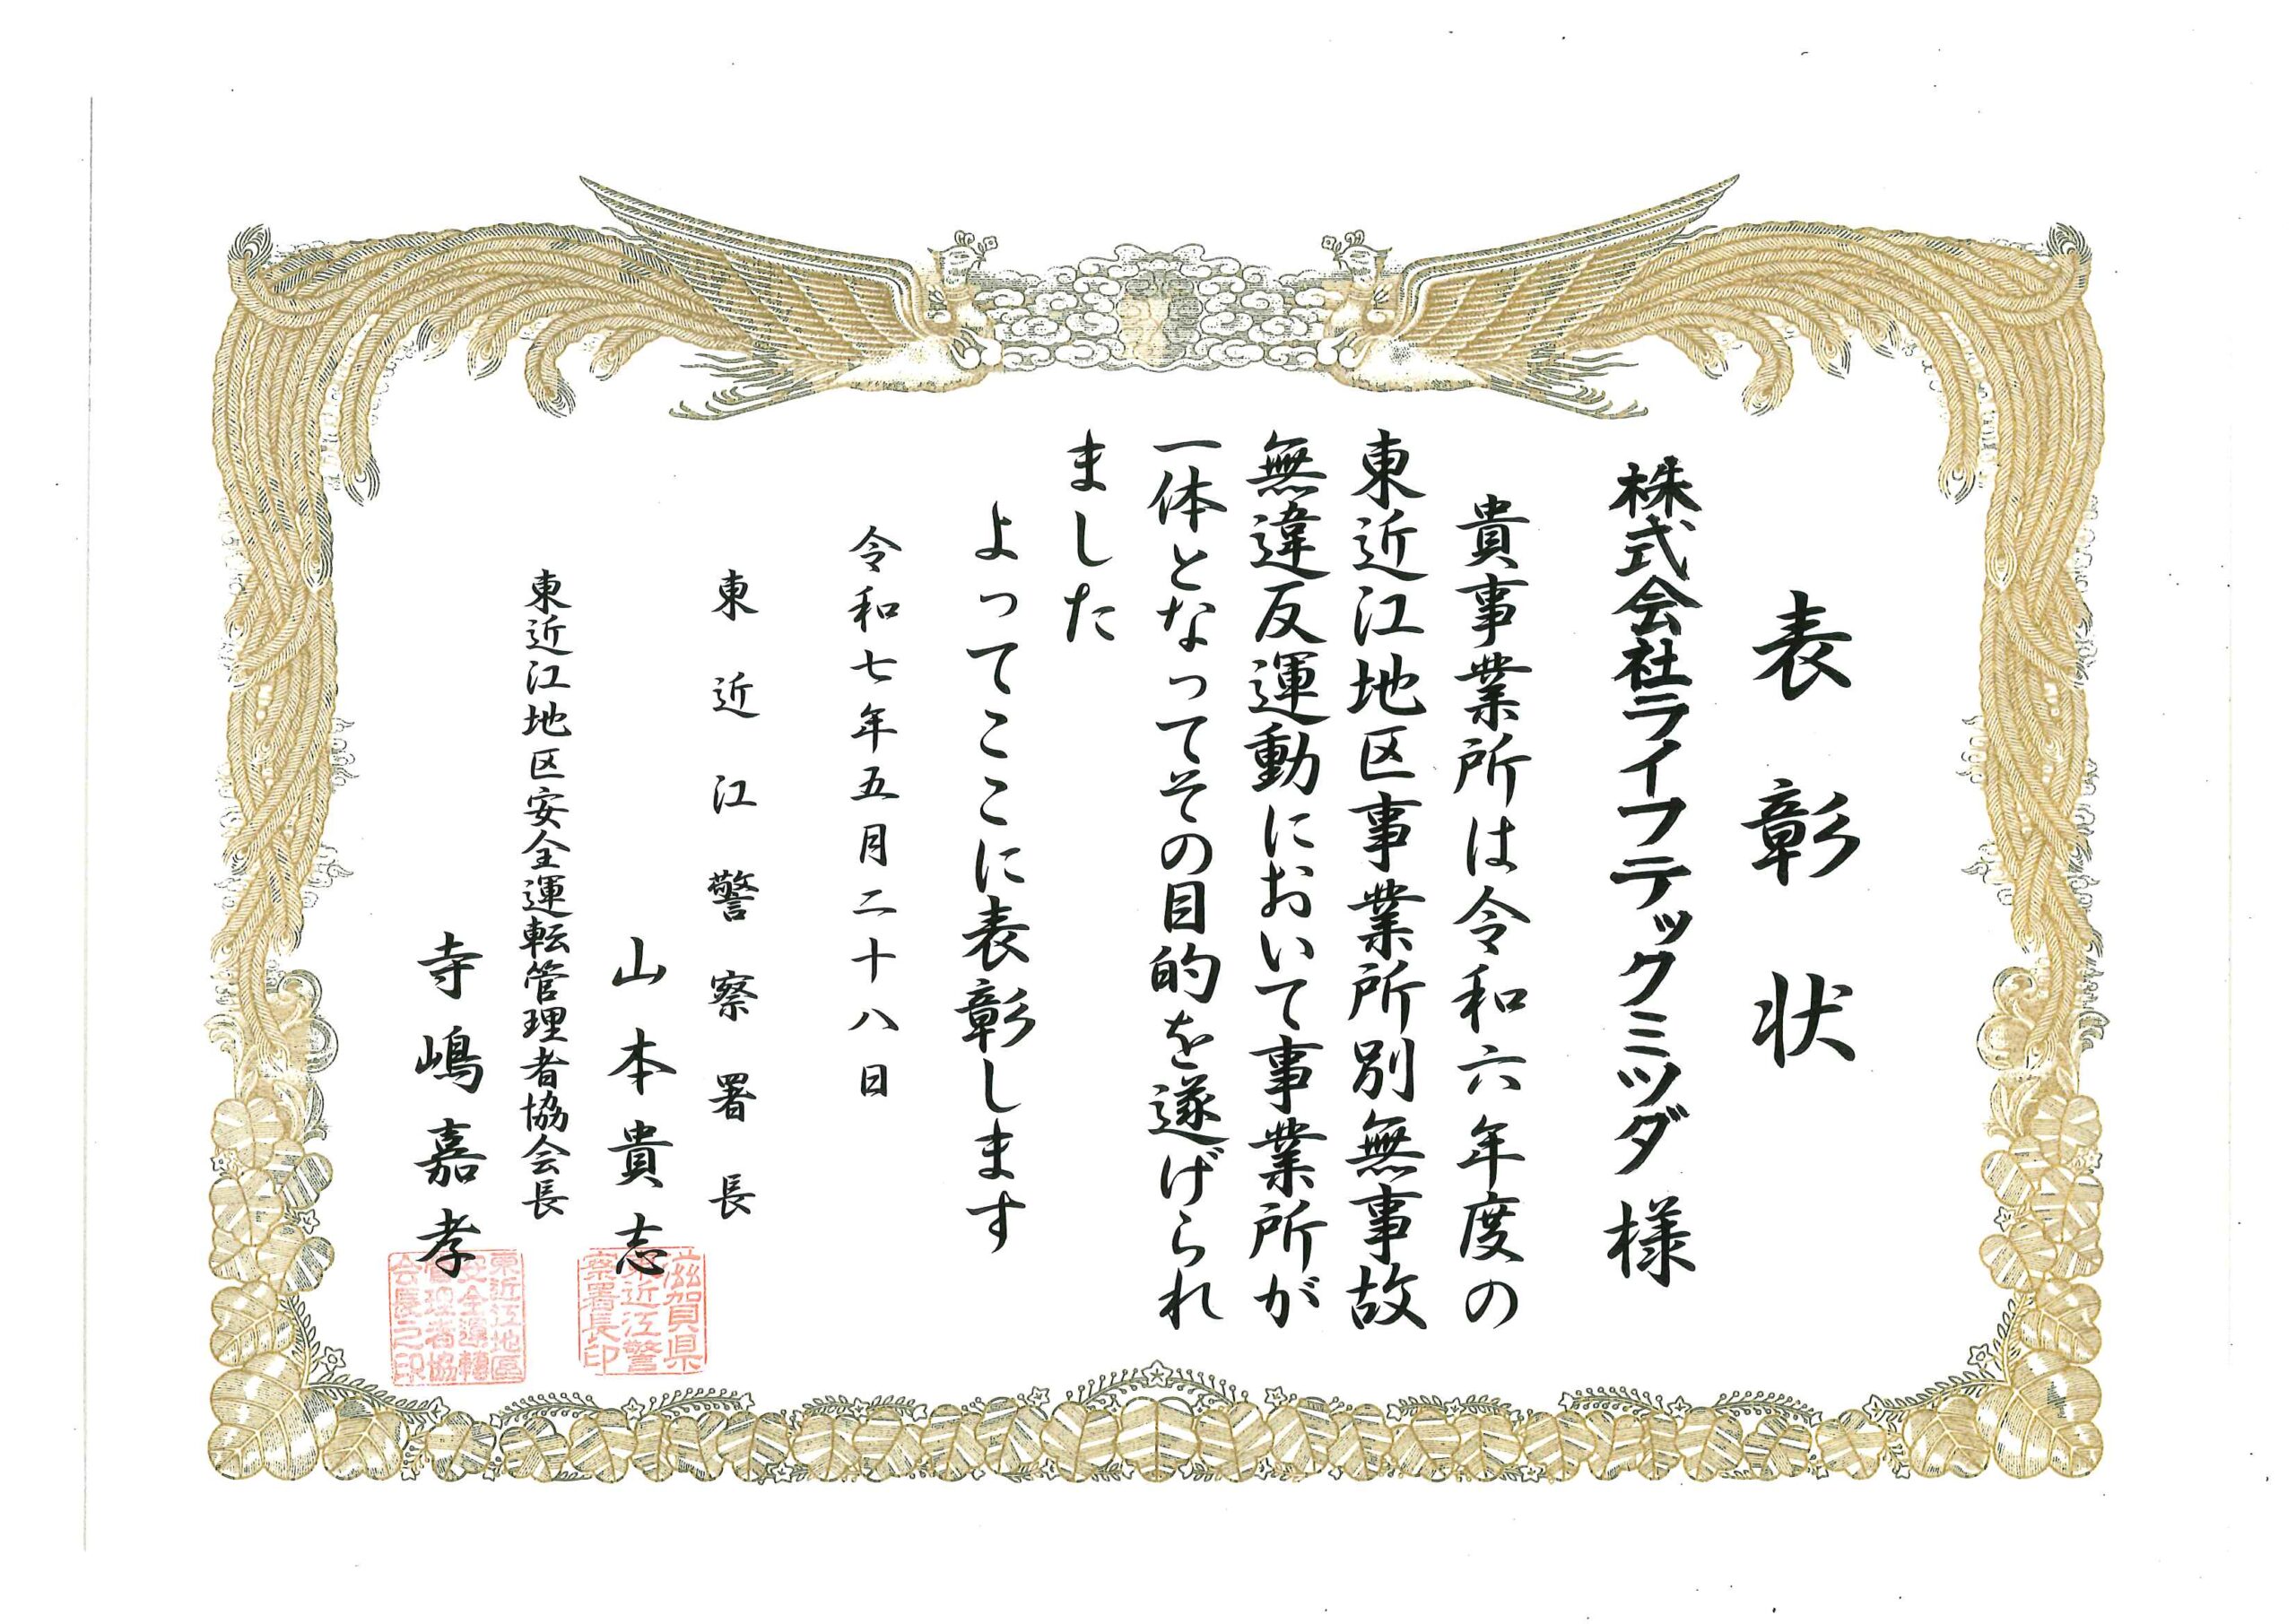 表彰状
株式会社ライフテックミツダ様
貴事業所は令和六年度の
東近江地区事業所別無事故
無違反運動において事業所が
一体となってその目的を遂げられ
ました
よってここに表彰します
令和七年五月二十八日
東近江警察署長
山本貴志
滋賀県
東近江警
察署長印
東近江地区安全運転管理者協会長
寺嶋嘉孝
東近江地區
安全運轉
管理者協
会長之印